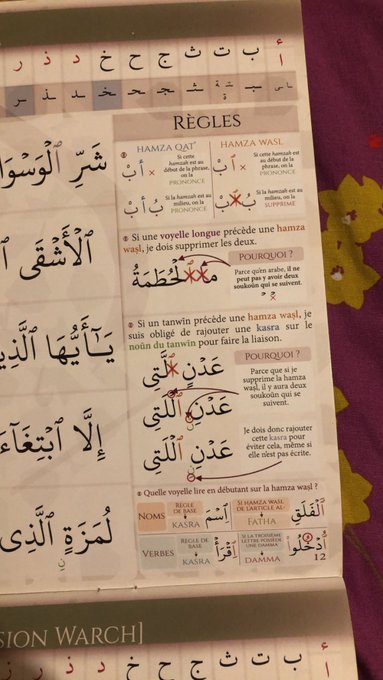 أ ب ت ث ج ح خ د ذ ر
RÈGLES
HAMZA QAT'
HAMZA WASL
Si cette hamzah est au début de la phrase, on la PRONONCE
أَبْ
Si cette hamzah est au début de la phrase, on la PRONONCE
Si la hamzah est au milieu, on la PRONONCE
Si la hamzah est au milieu, on la SUPPRIME
Si une voyelle longue précède une hamza waṣl, je dois supprimer les deux.
POURQUOI ?
Parce qu'en arabe, il ne peut pas y avoir deux soukoûn qui se suivent.
Si un tanwîn précède une hamza waṣl, je suis obligé de rajouter une kasra sur le noûn du tanwîn pour faire la liaison.
POURQUOI ?
Parce que si je supprime la hamza waṣl, il y aura deux soukoûn qui se suivent.
عَدْنٍ ٱلَّتِى
عَدْنٍ ٱللَّتِى
عَدْنِ ٱللَّتِى
Je dois donc rajouter cette kasra pour éviter cela, même si elle n'est pas écrite.
Quelle voyelle lire en débutant sur la hamza waṣl ?
NOMS
RÈGLE DE BASE
KASRA
ٱسْمَ
SI HAMZA WASL DE L'ARTICLE AL-
FATHA
ٱلْفَلَقِ
VERBES
RÈGLE DE BASE
KASRA
ٱقْرَأْ
SI LA TROISIÈME LETTRE POSSÈDE UNE DAMMA
DAMMA
ٱدْخُلُوا
12
شَرِّ ٱلْوَسْوَا
ٱلْأَشْقَى
يَـٰٓأَيُّهَا ٱلَّذِي
إِلَّا ٱبْتِغَآءَ
لُمَزَةٍ ٱلَّذِى
SION WARCH]
أ ب ت ث ج ح خ د ذ ر